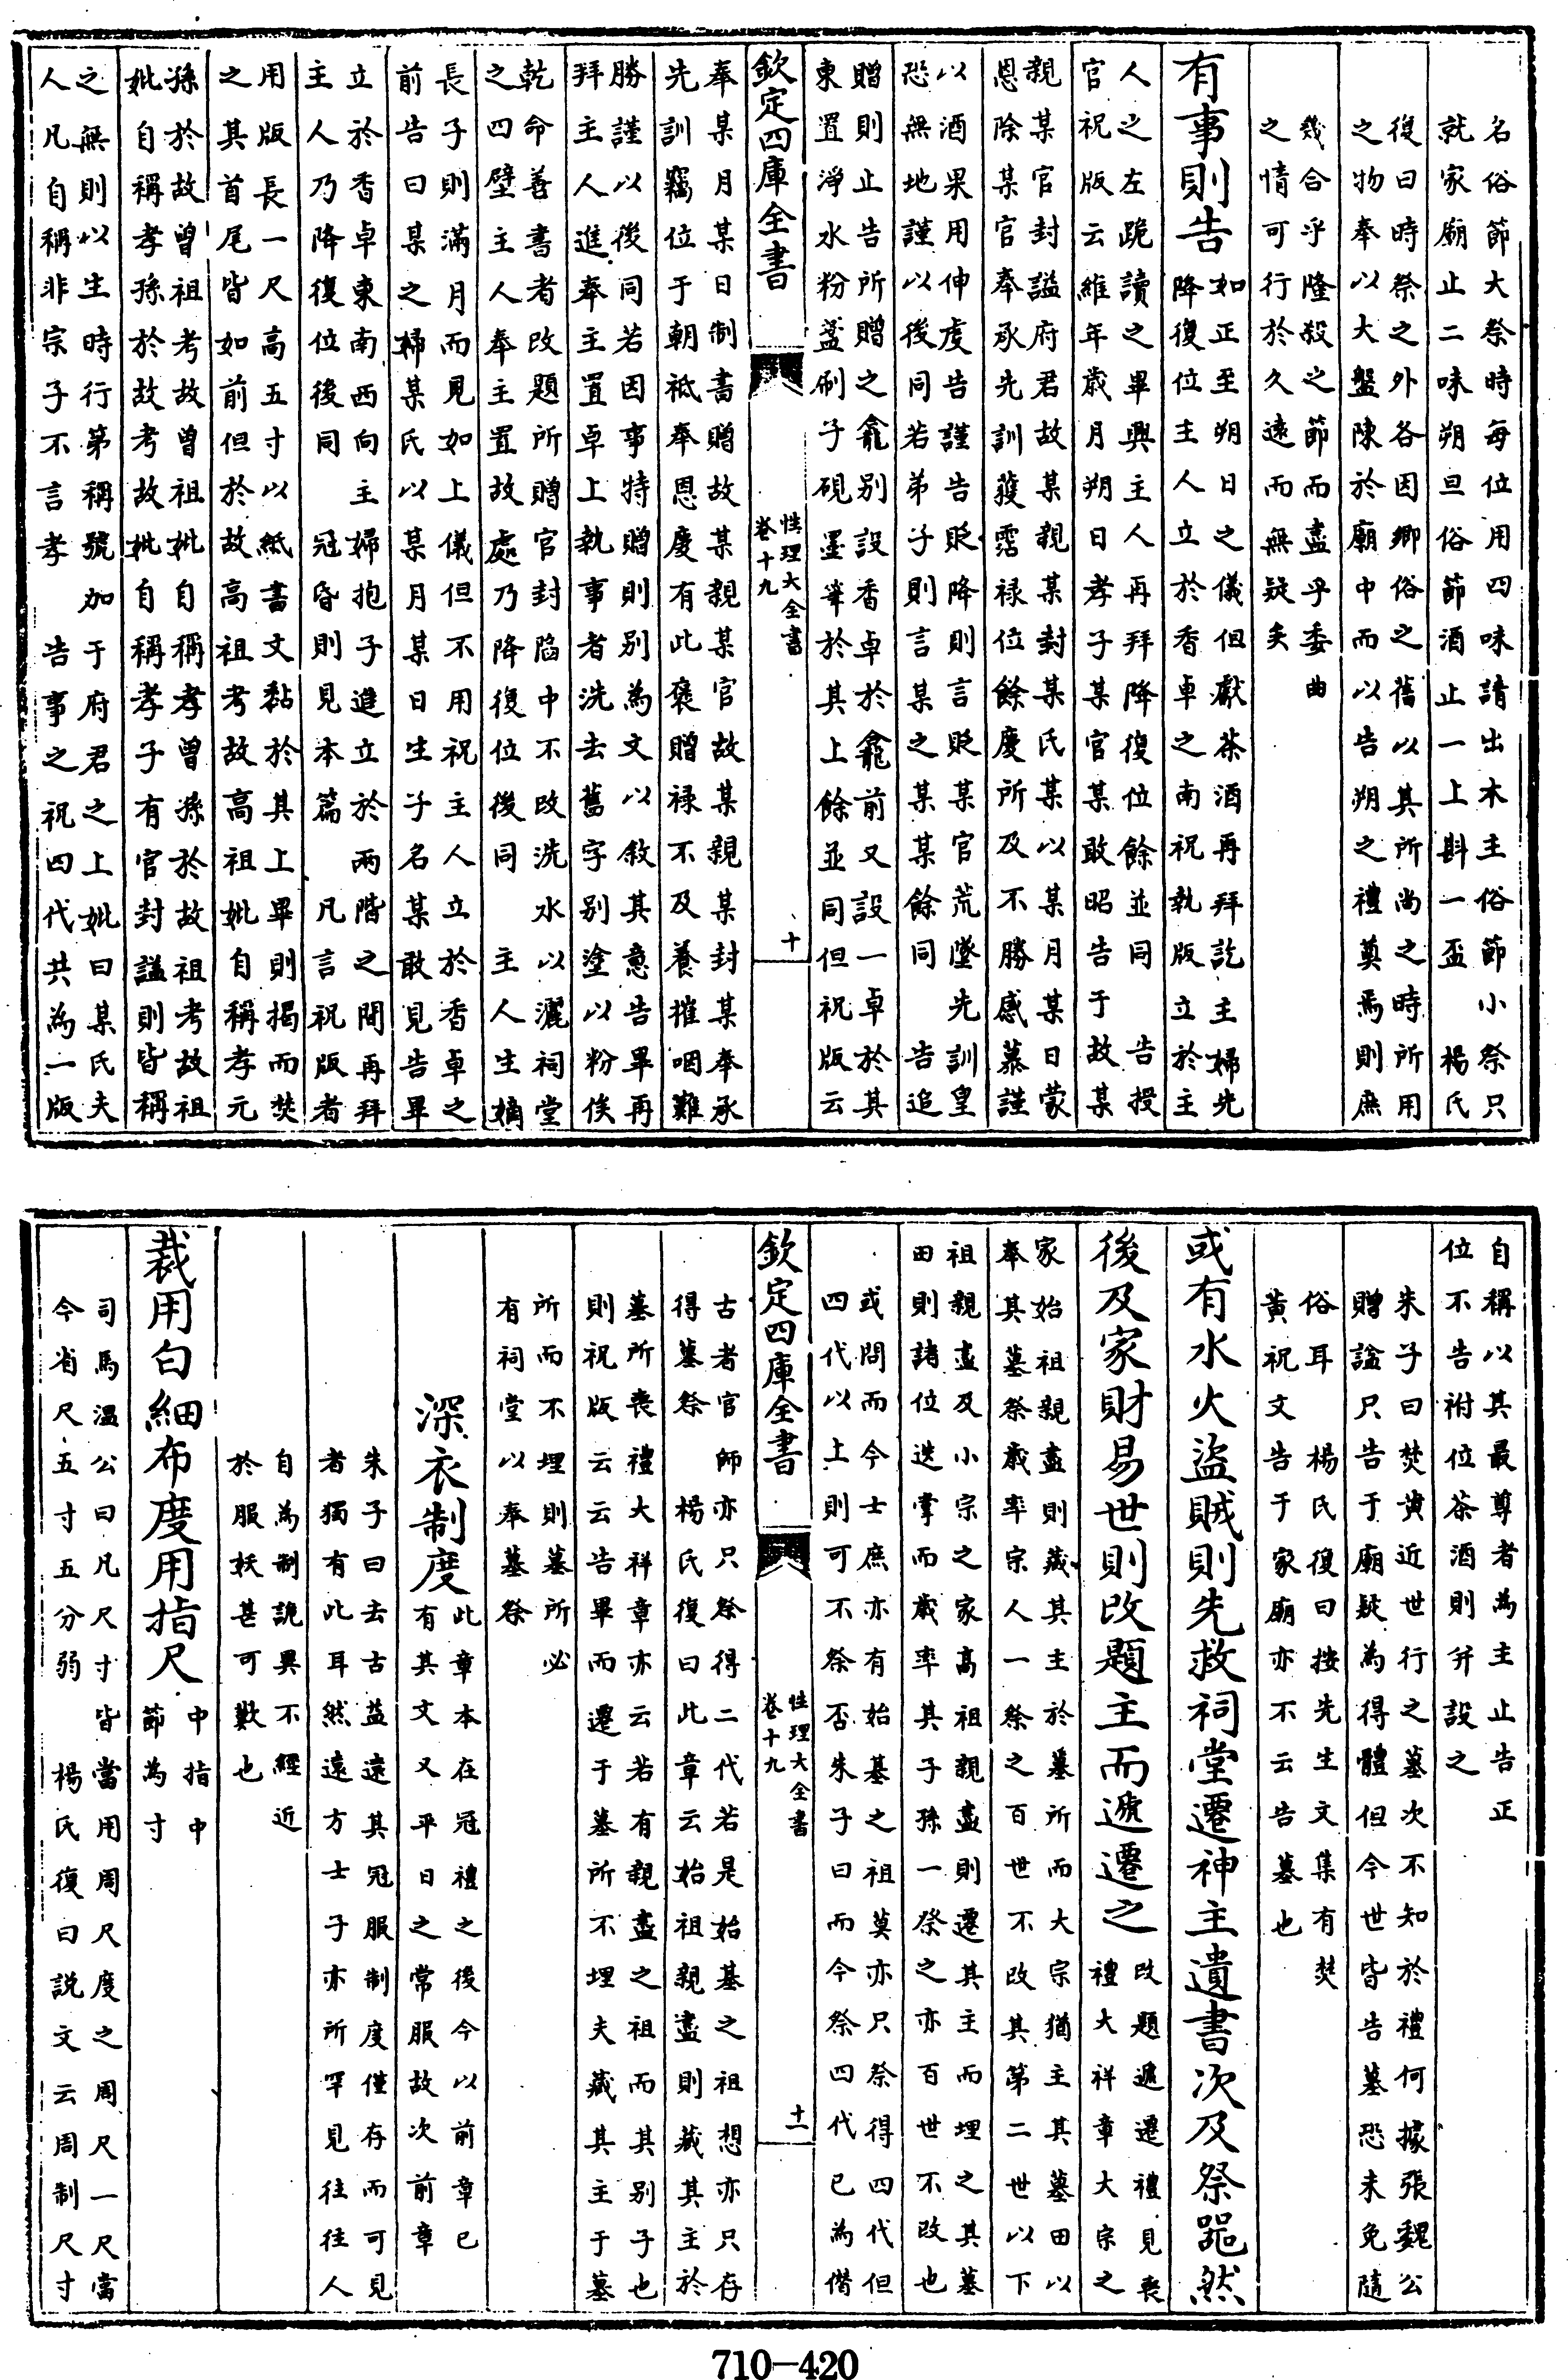 名俗節大祭時每位用四味請出木主俗節小祭只
就家廟止二味朔旦俗節酒止一上斟一盃　楊氏
復曰時祭之外各因鄉俗之舊以其所尚之時所用
之物奉以大盤陳於廟中而以告朔之禮奠焉則庶
幾合乎隆殺之節而盡乎委曲
之情可行於久遠而無疑矣
有事則告
如正至朔日之儀但獻茶酒再拜訖主婦先
降復位主人立於香卓之南祝執版立於主
人之左跪讀之畢興主人再拜降復位餘並同　告授
官祝版云維年歲月朔日孝子某官某敢昭告于故某
親某官封諡府君故某親某封某氏某以某月某日蒙
恩除某官奉承先訓獲霑祿位餘慶所及不勝感慕謹
以酒果用伸虔告謹告貶降則言貶某官荒墜先訓皇
恐無地謹以後同若弟子則言某之某某餘同　告追
贈則止告所贈之龕別設香卓於龕前又設一卓於其
東置淨水粉盞刷子硯墨筆於其上餘並同但祝版云
欽定四庫全書
性理大全書
卷十九
十
奉某月某日制書贈故某親某官故某親某封某奉承
先訓竊位于朝祗奉恩慶有此褒贈祿不及養摧咽難
勝謹以後同若因事特贈則別為文以敘其意告畢再
拜主人進奉主置卓上執事者洗去舊字別塗以粉俟
乾命善書者改題所贈官封陷中不改洗水以灑祠堂
之四壁主人奉主置故處乃降復位後同　主人生嫡
長子則滿月而見如上儀但不用祝主人立於香卓之
前告曰某之婦某氏以某月某日生子名某敢見告畢
立於香卓東南西向　主婦抱子進立於兩階之間再拜
主人乃降復位後同　冠昏則見本篇　凡言祝版者
用版長一尺高五寸以紙書文黏於其上畢則揭而焚
之其首尾皆如前但於故高祖考故高祖妣自稱孝元
孫於故曾祖考故曾祖妣自稱孝曾孫於故祖考故祖
妣自稱孝孫於故考故妣自稱孝子有官封諡則皆稱
之無則以生時行第稱號加于府君之上妣曰某氏夫
人凡自稱非宗子不言孝　告事之祝四代共為一版
自稱以其最尊者為主止告正
位不告祔位茶酒則并設之
朱子曰焚黃近世行之墓次不知於禮何據張魏公
贈諡只告于廟疑為得體但今世皆告墓恐未免隨
俗耳　楊氏復曰按先生文集有焚
黃祝文告于家廟亦不云告墓也
或有水火盜賊則先救祠堂遷神主遺書次及祭器然
後及家財易世則改題主而遞遷之
改題遞遷禮見喪
禮大祥章大宗之
家始祖親盡則藏其主於墓所而大宗猶主其墓田以
奉其墓祭歲率宗人一祭之百世不改其第二世以下
祖親盡及小宗之家高祖親盡則遷其主而埋之其墓
田則諸位迭掌而歲率其子孫一祭之亦百世不改也
或問而今士庶亦有始基之祖莫亦只祭得四代但
四代以上則可不祭否朱子曰而今祭四代已為僭
欽定四庫全書
性理大全書
卷十九
十一
古者官師亦只祭得二代若是始基之祖想亦只存
得墓祭　楊氏復曰此章云始祖親盡則藏其主於
墓所喪禮大祥章亦云若有親盡之祖而其別子也
則祝版云云告畢而遷于墓所不埋夫藏其主于墓
所而不埋則墓所必
有祠堂以奉墓祭
深衣制度
此章本在冠禮之後今以前章已
有其文又平日之常服故次前章
朱子曰去古益遠其冠服制度僅存而可見
者獨有此耳然遠方士子亦所罕見往往人
自為制詭異不經近
於服妖甚可歎也
裁用白細布度用指尺
中指中
節為寸
司馬溫公曰凡尺寸皆當用周尺度之周尺一尺當
今省尺五寸五分弱　楊氏復曰說文云周制尺寸
710—420